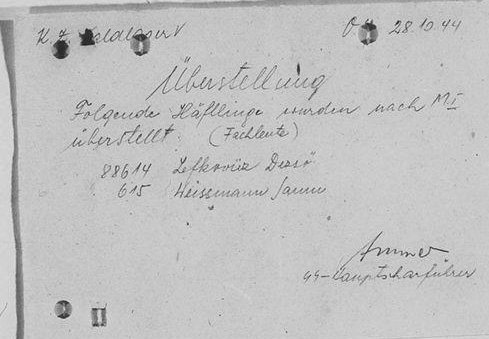 K. Z. Waldlager V O.U. 28.10.44
Überstellung
Folgende Häftlinge wurden nach M I
überstellt. (Fachleute)
88614 Lefkovicz Dezsö
615 Weissmann
SS-Hauptscharführer